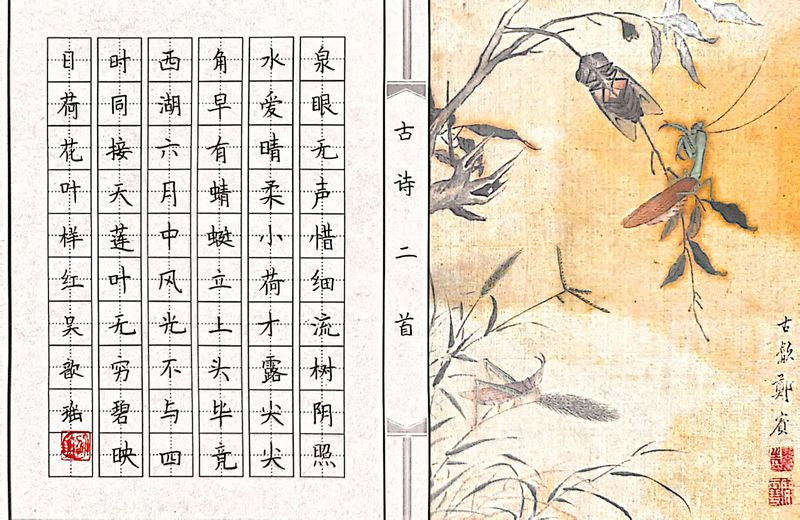 泉眼无声惜细流树阴照
水爱晴柔小荷才露尖尖
角早有蜻蜓立上头毕竟
西湖六月中风光不与四
时同接天莲叶无穷碧映
目荷花叶样红吴歆
古诗二首
古歙鄭